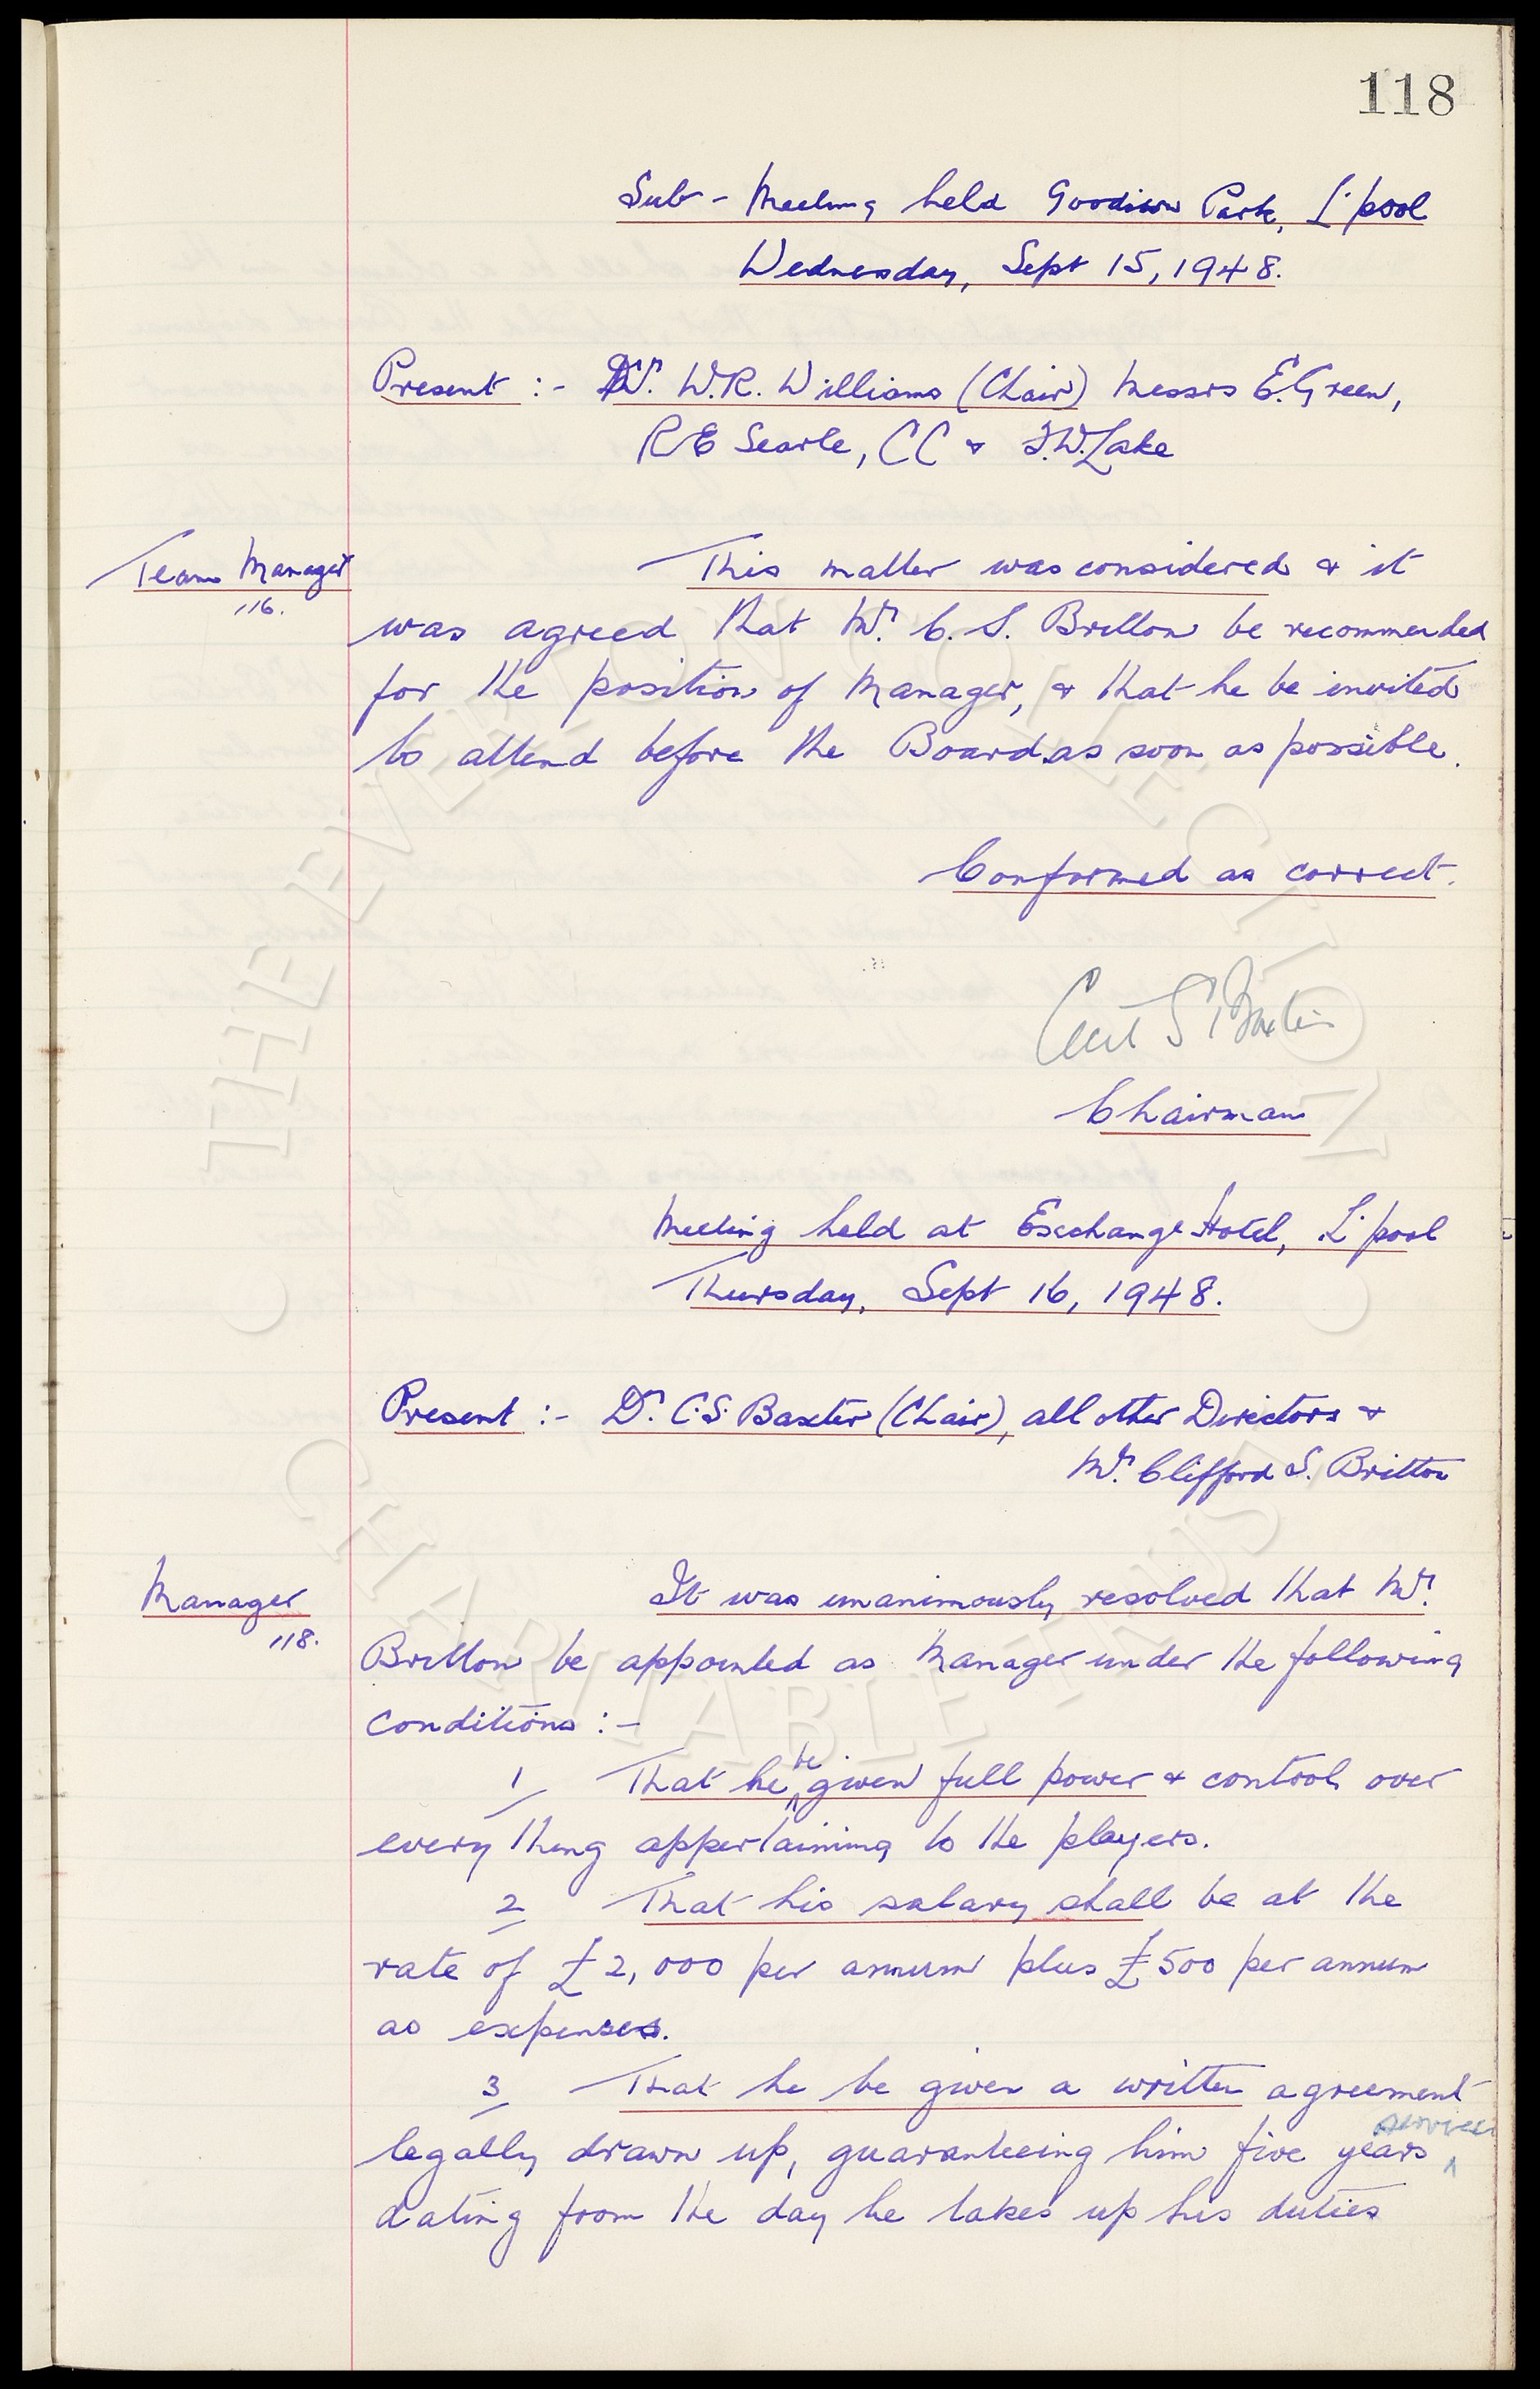 118
Sub-Meeting held Goodison Park, L'pool
Wednesday, Sept 15, 1948.
Present :- Mr. W.R. Williams (Chair) Messrs E. Green,
R E Searle, CC & F.W. Lake
Team Manager
116.
This matter was considered & it
was agreed that Mr. C. S. Britton be recommended
for the position of Manager, & that he be invited
to attend before the Board as soon as possible.
Confirmed as correct.
Cecil S Baxter
Chairman
Meeting held at Exchange Hotel, L'pool
Thursday, Sept 16, 1948.
Present :- Dr. C.S. Baxter (Chair), all other Directors &
Mr. Clifford S. Britton
Manager
118.
It was unanimously resolved that Mr.
Britton be appointed as Manager under the following
conditions :-
1 That he be given full power & control over
every thing appertaining to the players.
2 That his salary shall be at the
rate of £2,000 per annum plus £500 per annum
as expenses.
3 That he be given a written agreement
legally drawn up, guaranteeing him five years service
dating from the day he takes up his duties
THE EVERTON COLLECTION
CHARITABLE TRUST